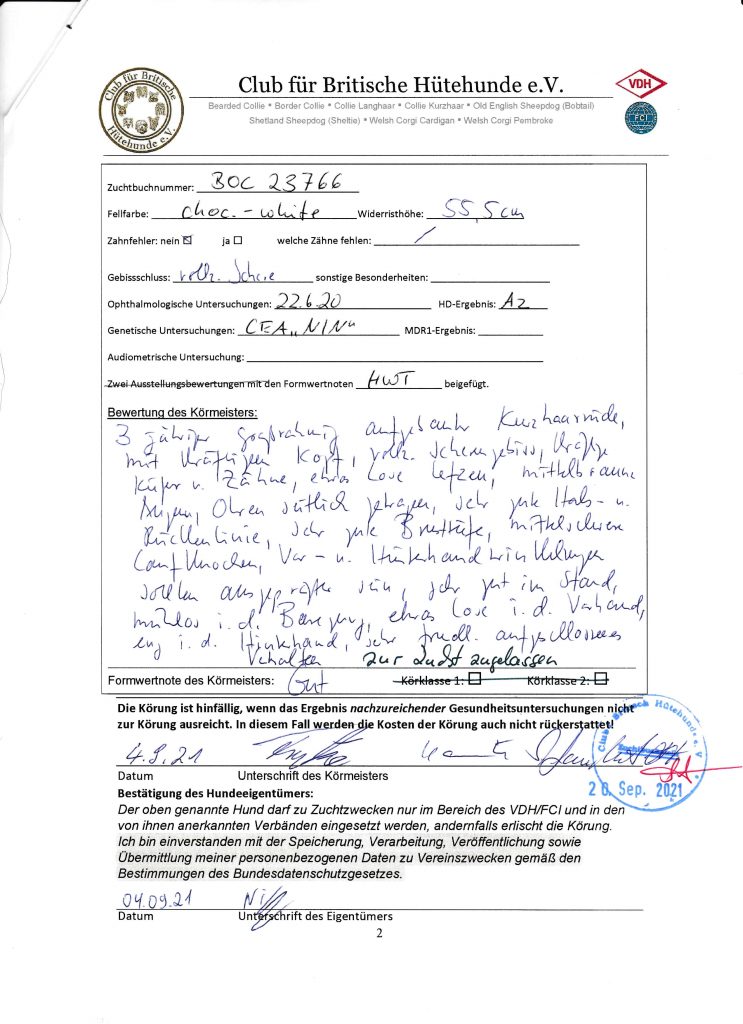 Club für Britische Hütehunde e.V.
Club für Britische Hütehunde e.V.
VDH
FCI
Bearded Collie • Border Collie • Collie Langhaar • Collie Kurzhaar • Old English Sheepdog (Bobtail)
Shetland Sheepdog (Sheltie) • Welsh Corgi Cardigan • Welsh Corgi Pembroke
Zuchtbuchnummer: BOC 23766
Fellfarbe: choc.-white Widerristhöhe: 55,5cm
Zahnfehler: nein ☒ ja ☐ welche Zähne fehlen: /
Gebissschluss: vollz. Schere sonstige Besonderheiten:
Ophthalmologische Untersuchungen: 22.6.20 HD-Ergebnis: A2
Genetische Untersuchungen: CEA „N/N" MDR1-Ergebnis:
Audiometrische Untersuchung:
Zwei Ausstellungsbewertungen mit den Formwertnoten HWT beigefügt.
Bewertung des Körmeisters:
3 jähriger aufgebauter Kurzhaarrüde,
mit kräftigem Kopf, vollz. Scherengebiss, kräftige
Kiefer u. Zähne, etwas lose Lefzen, mittelbraune
Augen, Ohren seitlich getragen, sehr gute Hals- u.
Rückenlinie, sehr gute Brusttiefe, mittelschwere
Laufknochen, Vor- u. Hinterhandwinkelungen
sollten ausgeprägter sein, sehr gut im Stand,
mühelos i.d. Bewegung, etwas lose i.d. Vorhand,
eng i.d. Hinterhand, sehr freundl. aufgeschlossenes
Verhalten zur Zucht zugelassen
Formwertnote des Körmeisters: Gut Körklasse 1: ☐ Körklasse 2: ☐
Die Körung ist hinfällig, wenn das Ergebnis nachzureichender Gesundheitsuntersuchungen nicht
zur Körung ausreicht. In diesem Fall werden die Kosten der Körung auch nicht rückerstattet!
4.9.21
Club Britisch Hütehunde e.V.
20. Sep. 2021
Datum Unterschrift des Körmeisters
Bestätigung des Hundeeigentümers:
Der oben genannte Hund darf zu Zuchtzwecken nur im Bereich des VDH/FCI und in den
von ihnen anerkannten Verbänden eingesetzt werden, andernfalls erlischt die Körung.
Ich bin einverstanden mit der Speicherung, Verarbeitung, Veröffentlichung sowie
Übermittlung meiner personenbezogenen Daten zu Vereinszwecken gemäß den
Bestimmungen des Bundesdatenschutzgesetzes.
04.09.21
Datum Unterschrift des Eigentümers
2